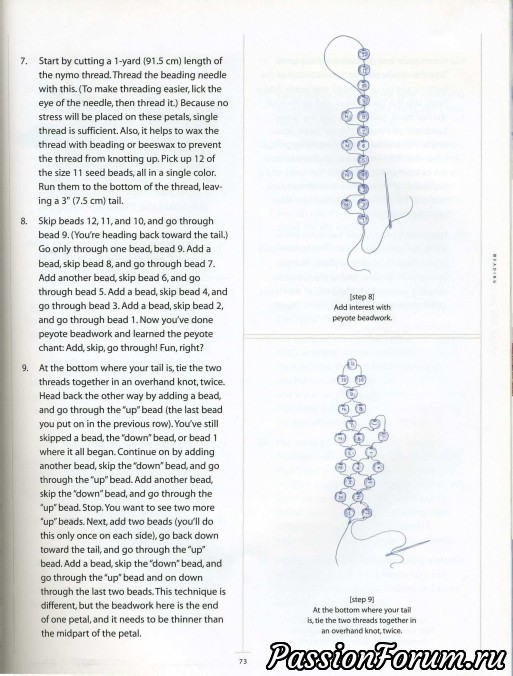 7. Start by cutting a 1-yard (91.5 cm) length of
the nymo thread. Thread the beading needle
with this. (To make threading easier, lick the
eye of the needle, then thread it.) Because no
stress will be placed on these petals, single
thread is sufficient. Also, it helps to wax the
thread with beading or beeswax to prevent
the thread from knotting up. Pick up 12 of
the size 11 seed beads, all in a single color.
Run them to the bottom of the thread, leav-
ing a 3" (7.5 cm) tail.
8. Skip beads 12, 11, and 10, and go through
bead 9. (You're heading back toward the tail.)
Go only through one bead, bead 9. Add a
bead, skip bead 8, and go through bead 7.
Add another bead, skip bead 6, and go
through bead 5. Add a bead, skip bead 4, and
go through bead 3. Add a bead, skip bead 2,
and go through bead 1. Now you've done
peyote beadwork and learned the peyote
chant: Add, skip, go through! Fun, right?
9. At the bottom where your tail is, tie the two
threads together in an overhand knot, twice.
Head back the other way by adding a bead,
and go through the "up" bead (the last bead
you put on in the previous row). You've still
skipped a bead, the "down" bead, or bead 1
where it all began. Continue on by adding
another bead, skip the "down" bead, and go
through the "up" bead. Add another bead,
skip the "down" bead, and go through the
"up" bead. Stop. You want to see two more
"up" beads. Next, add two beads (you'll do
this only once on each side), go back down
toward the tail, and go through the "up"
bead. Add a bead, skip the "down" bead, and
go through the "up" bead and on down
through the last two beads. This technique is
different, but the beadwork here is the end
of one petal, and it needs to be thinner than
the midpart of the petal.
[step 8]
Add interest with
peyote beadwork.
[step 9]
At the bottom where your tail
is, tie the two threads together in
an overhand knot, twice.
73
PassionForum.ru